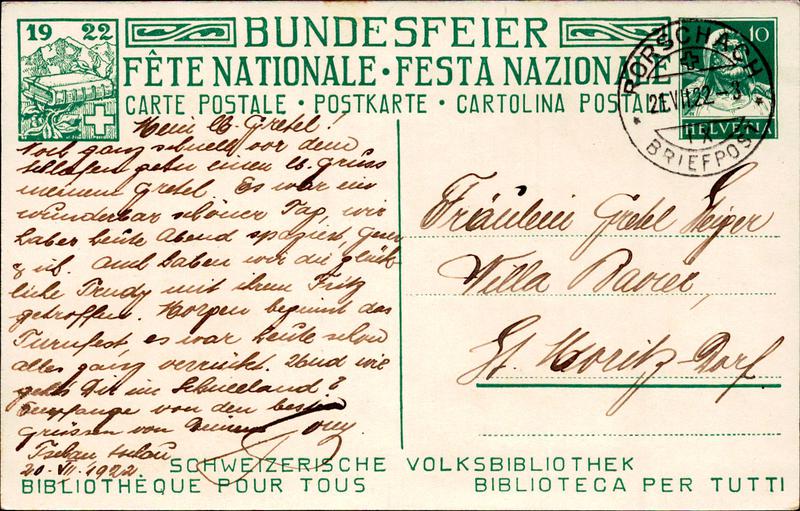 1922
BUNDESFEIER
FÊTE NATIONALE · FESTA NAZIONALE
CARTE POSTALE · POSTKARTE · CARTOLINA POSTALE
10
HELVETIA
RORSCHACH
21.VII.22-3
BRIEFPOST
Mein lb. Gretel!
Noch ganz schnell vor dem
schlafen gehn einen lb. Gruss
meinem Gretel. Es war ein
wunderbar schöner Tag, wir
haben heute Abend spaziert,
& ich. Auch haben wir die glück-
liche Trudy mit ihrem Fritz
getroffen. Morgen beginnt das
Turnfest, es war heute schon
alles ganz verrückt. Und wie
gehts Dir im Schneeland?
Empfange von den besten
Grüssen von Deinem
Tschau tschau
20. VII. 1922.
Fräulein Gretel Geiger
Villa Bavier,
St. Moritz-Dorf
SCHWEIZERISCHE VOLKSBIBLIOTHEK
BIBLIOTHÈQUE POUR TOUS BIBLIOTECA PER TUTTI